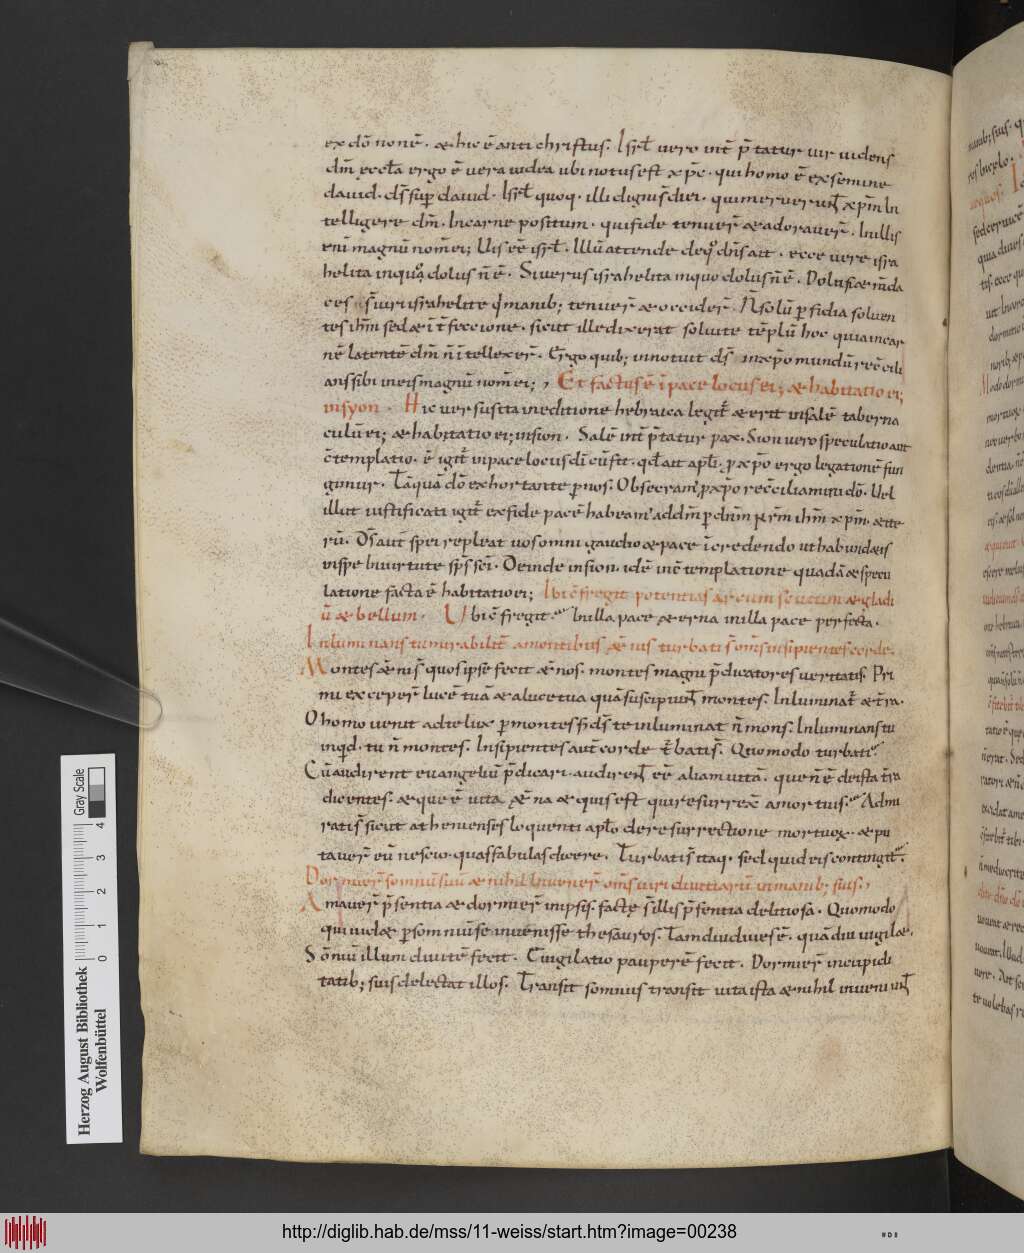 ex dō non ē. & hic ē antichristus. Isrl̄ vero int̄ p̄tatur vir videns
dm̄. eccl̄a ergo ē vera iudea ubi notus est xp̄c. qui homo ē ex semine
david. ds̄ sup̄ david. Isrl̄ quoq. illi digni s̄ dici. qui meruer̄ xp̄m In
telligere dm̄. Incarne positum. qui fide tenuer̄ & adoraver̄. In illis
eni magnū nom̄ ei; Vis eē isrl̄. Illū attende de quo dn̄s ait. ecce vere isra
helita in quo dolus n̄ ē. Si verus israhelita in quo dolus n̄ ē. Dolusi &
ces s̄ viri israhelite q̄ manib; tenuer̄ & occider̄. N̄ solū perfidia solven
tes ih̄m sed & īt̄fectione. sicut ille dixerat solvite tēplū hoc quia incar
nē latentē dm̄ n̄ ītellexer̄. Ergo quib; innotuit ds̄ in xp̄o mundū recc̄ili
ans sibi in eis magnū nom̄ ei;, Et factus ē ī pace locus ei; & habitatio ei;
in syon. Hic versus ita in editione hebraica legit̄ & erit in salē taberna
culū ei; & habitatio ei; in sion. Salē int̄p̄tatur pax. Sion vero speculatio aut
c̄templatio. ē igit̄ in pace locus dī cū fit. qd̄ ait apl̄s. p xp̄o ergo legationē fun
gimur. Tāquā dō exhortante p nos. Obsecram' p xp̄o recc̄iliamini dō. Vel
illut iustificati igit̄ ex fide pacē habeam' ad dm̄ p dnm̄ nr̄m ih̄m xp̄m. & ite
rū. Ds̄ aut spei repleat vos omni gaudio & pace ī credendo ut habundetis
in spe In virtute sp̄s sc̄i. Deinde in sion. idē in c̄templatione quadā & specu
latione facta ē habitatio ei; Ibi c̄fregit potentias arcum scutum & gladi
ū & bellum. Ubi c̄fregit. In illa pace aeterna in illa pace perfecta.
Inluminans tu mirabilit̄ a montibus aet̄nis turbati s̄ om̄s insipientes corde.
Montes aet̄nis quos ipse fecit aet̄nos. montes magni p̄dicatores veritatis. Pri
mi exceper̄ lucē tuā & a luce tua quā suscipiunt montes. Inluminat̄ & t̄ra.
O homo venit ad te lux p montes s; ds̄ te inluminat n̄ mons. Inluminans tu
inqd. tu n̄ montes. Insipientes aut̄ corde t̄bati s̄. Quomodo turbati
Cū audirent evangeliū p̄dicari. audirent eē aliam vitā. que n̄ ē de ista t̄ra
dicentes. & que ē vita aet̄na & quis est qui resurrex̄ a mortuis. Admi
rati s̄ sicut athenienses loquenti apl̄o de resurrectione mortuoꝝ. & pu
taver̄ eū nescio quas fabulas dicere. Turbati s̄ itaq. sed quid eis contingit.
Dormier̄ somnū suū & nihil Invener̄ om̄s viri divitiarū in manib; suis.,
Amaver̄ p̄sentia & dormier̄ in ipsis. facte s̄ illis p̄sentia delitiosa. Quomodo
qui videt p somniū se invenisse thesauros. Tamdiu dives ē. quādiu vigilet.
Sōniū illum divitē fecit. Evigilatio pauperē fecit. Dormier̄ in cupidi
tatib; suis delectat illos. Transit somnus transit vita ista & nihil inveniunt
Herzog August Bibliothek
Wolfenbüttel
0 1 2 3 4
Gray Scale
http://diglib.hab.de/mss/11-weiss/start.htm?image=00238